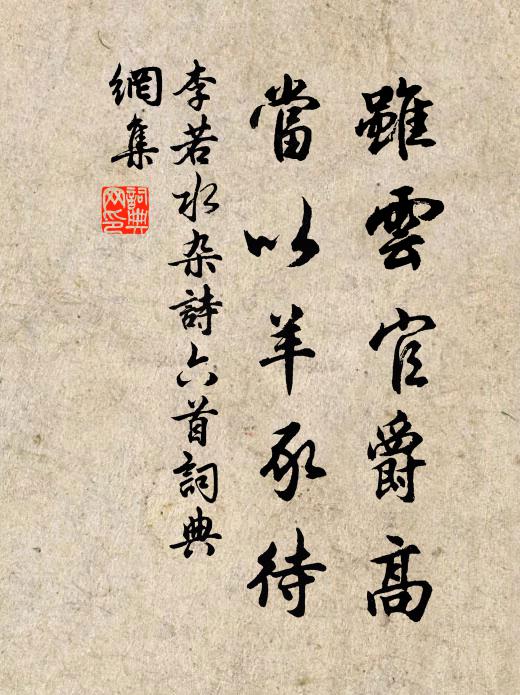 雖雲官爵高
當以羊豕待
李若水杂詩六首詞典
網集
詞典网印